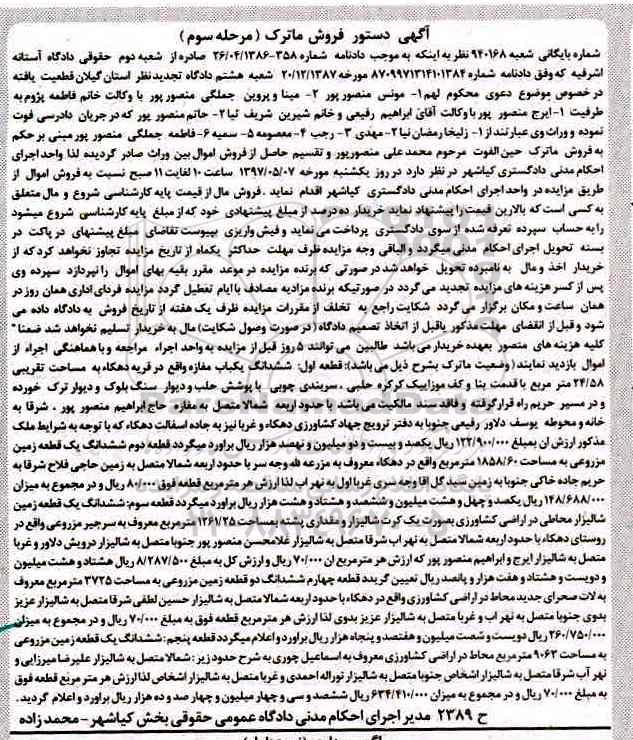 آگهی دستور فروش ماترک (مرحله سوم)
شماره بایگانی شعبه ۹۴۰۱۶۸ نظر به اینکه به موجب دادنامه شماره ۳۵۸-۲۶/۰۴/۱۳۸۶ صادره از شعبه دوم حقوقی دادگاه آستانه
اشرفیه که وفق دادنامه شماره ۸۷۰۹۹۷۱۳۱۴۱۰۱۳۸۴ مورخه ۲۰/۱۲/۱۳۸۷ شعبه هشتم دادگاه تجدید نظر استان گیلان قطعیت یافته
در خصوص موضوع دعوی محکوم لهم ۱- مونس منصور پور ۲- مینا و پروین جملگی منصور پور با وکالت خانم فاطمه پژوم به
طرفیت ۱- ایرج منصور پور با وکالت آقای ابراهیم رفیعی و خانم شیرین شریف نیا ۲- حاتم منصور پور که در جریان دادرسی فوت
نموده و وراث وی عبارتند از ۱- زلیخا رمضان نیا ۲- مهدی ۳- رجب ۴- معصومه ۵- سمیه ۶- فاطمه جملگی منصور پور مبنی بر حکم
به فروش ماترک حین الفوت مرحوم محمد علی منصورپور و تقسیم حاصل از فروش اموال بین وراث صادر گردیده لذا واحد اجرای
احکام مدنی دادگستری کیاشهر در نظر دارد در روز یکشنبه مورخه ۱۳۹۷/۰۵/۰۷ ساعت ۱۰ لغایت ۱۱ صبح نسبت به فروش اموال از
طریق مزایده در واحد اجرای احکام مدنی دادگستری کیاشهر اقدام نماید . فروش مال از قیمت پایه کارشناسی شروع و مال متعلق
به کسی است که بالاترین قیمت را پیشنهاد نماید خریدار ده درصد از مبلغ پیشنهادی خود که از مبلغ پایه کارشناسی شروع میشود
را به حساب سپرده تعرفه شده از سوی دادگستری پرداخت می نماید و فیش واریزی بپیوست تقاضای مبلغ پیشنهای در پاکت در
بسته تحویل اجرای احکام مدنی میگردد و الباقی وجه مزایده ظرف مهلت حداکثر یکماه از تاریخ مزایده تجاوز نخواهد کرد که از
خریدار اخذ و مال به نامبرده تحویل خواهد شد در صورتی که برنده مزایده در موعد مقرر بقیه بهای اموال را نپردازد سپرده وی
پس از کسر هزینه های مزایده تجدید می گردد در صورتیکه برنده مزادیه مصادف با ایام تعطیل گردد مزایده فردای اداری همان روز در
همان ساعت و مکان برگزار می گردد شکایت راجع به تخلف از مقررات مزایده ظرف یک هفته از تاریخ فروش به دادگاه داده می
شود و قبل از انقضای مهلت مذکور یاقبل از اتخاذ تصمیم دادگاه (در صورت وصول شکایت) مال به خریدار تسلیم نخواهد شد ضمنا"
کلیه هزینه های منصور بعهده خریدار می باشد طالبین می توانند ۵ روز قبل از مزایده به واحد اجراء مراجعه و با هماهنگی اجراء از
اموال بازدید نمایند (وضعیت ماترک بشرح ذیل می باشد): قطعه اول: ششدانگ یکباب مغازه واقع در قریه دهکاه به مساحت تقریبی
۲۴/۵۸ متر مربع با قدمت بنا و کف موزاییک کرکره حلبی ، سربندی چوبی با پوشش حلب و دیوار سنگ بلوک و دیوار ترک خورده
و در مسیر حریم راه قرار گرفته و فاقد سند مالکیت می باشد با حدود اربعه شمالا متصل به مغازه حاج ابراهیم منصور پور ، شرقا به
خانه و محوطه یوسف دلاور رفیعی جنوبا به دفتر ترویج جهاد کشاورزی دهکاه و غربا نیز به جاده اسفالت دهکاه که با توجه به شرایط ملک
مذکور ارزش ان بمبلغ ۱۲۲/۹۰۰/۰۰۰ ریال یکصد و بیست و دو میلیون و نهصد هزار ریال براورد میگردد قطعه دوم ششدانگ یک قطعه زمین
مزروعی به مساحت ۱۸۵۸/۶۰ مترمربع واقع در دهکاه معروف به مزرعه لله وجه سر با حدود اربعه شمالا متصل به زمین حاجی فلاح شرقا به
حریم جاده خاکی جنوبا به زمین سید گل اقا وجه سری غربا اول به نهر اب لذا ارزش هر مترمربع قطعه فوق ۸۰/۰۰۰ ریال و در مجموع به میزان
۱۴۸/۶۸۸/۰۰۰ ریال یکصد و چهل و هشت میلیون و ششصد و هشتاد و هشت هزار ریال براورد میگردد قطعه سوم: ششدانگ یک قطعه زمین
شالیزار محاطی در اراضی کشاورزی بصورت یک کرت شالیزار و مقداری پشته بمساحت ۱۲۶۱/۲۵ مترمربع معروف به سرجیر مزروعی واقع در
روستای دهکاه با حدود اربعه شمالا متصل به نهر اب شرقا متصل به شالیزار غلامحسن منصور پور جنوبا متصل به شالیزار درویش دلاور و غربا
متصل به شالیزار ایرج و ابراهیم منصور پور که ارزش هر مترمربع ان ۷۰/۰۰۰ ریال و ارزش کل به مبلغ ۸/۲۸۷/۵۰۰ ریال هشتاد و هشت میلیون
و دویست و هشتاد و هفت هزار و پانصد ریال تعیین گردد قطعه چهارم ششدانگ دو قطعه زمین مزروعی به مساحت ۳۷۲۵ مترمربع معروف
به لات صحرای جدید محاط در اراضی کشاورزی واقع در دهکاه با حدود اربعه شمالا متصل به شالیزار حسین لطفی شرقا متصل به شالیزار عزیز
بدوی جنوبا متصل به نهر اب و غربا متصل به شالیزار عزیز بدوی لذا ارزش هر مترمربع قطعه فوق به مبلغ ۷۰/۰۰۰ ریال و در مجموع به میزان
۲۶۰/۷۵۰/۰۰۰ ریال دویست و شصت میلیون و هفتصد و پنجاه هزار ریال براورد و اعلام میگردد قطعه پنجم: ششدانگ یک قطعه زمین مزروعی
به مساحت ۹۰۶۳ مترمربع محاط در اراضی کشاورزی معروف به اسماعیل چوری به شرح حدود زیر: شمالا متصل به شالیزار علیرضا میرزایی و
نهر آب شرقا متصل به شالیزار اشخاص جنوبا متصل به شالیزار نوراله احمدی و غربا متصل به شالیزار اشخاص لذا ارزش هر متر مربع قطعه فوق
به مبلغ ۷۰/۰۰۰ ریال و در مجموع به میزان ۶۳۴/۴۱۰/۰۰۰ ریال ششصد و سی و چهار میلیون و چهار صد و ده هزار ریال براورد و اعلام گردید.
ح ۲۳۸۹ مدیر اجرای احکام مدنی دادگاه عمومی حقوقی بخش کیاشهر - محمد زاده